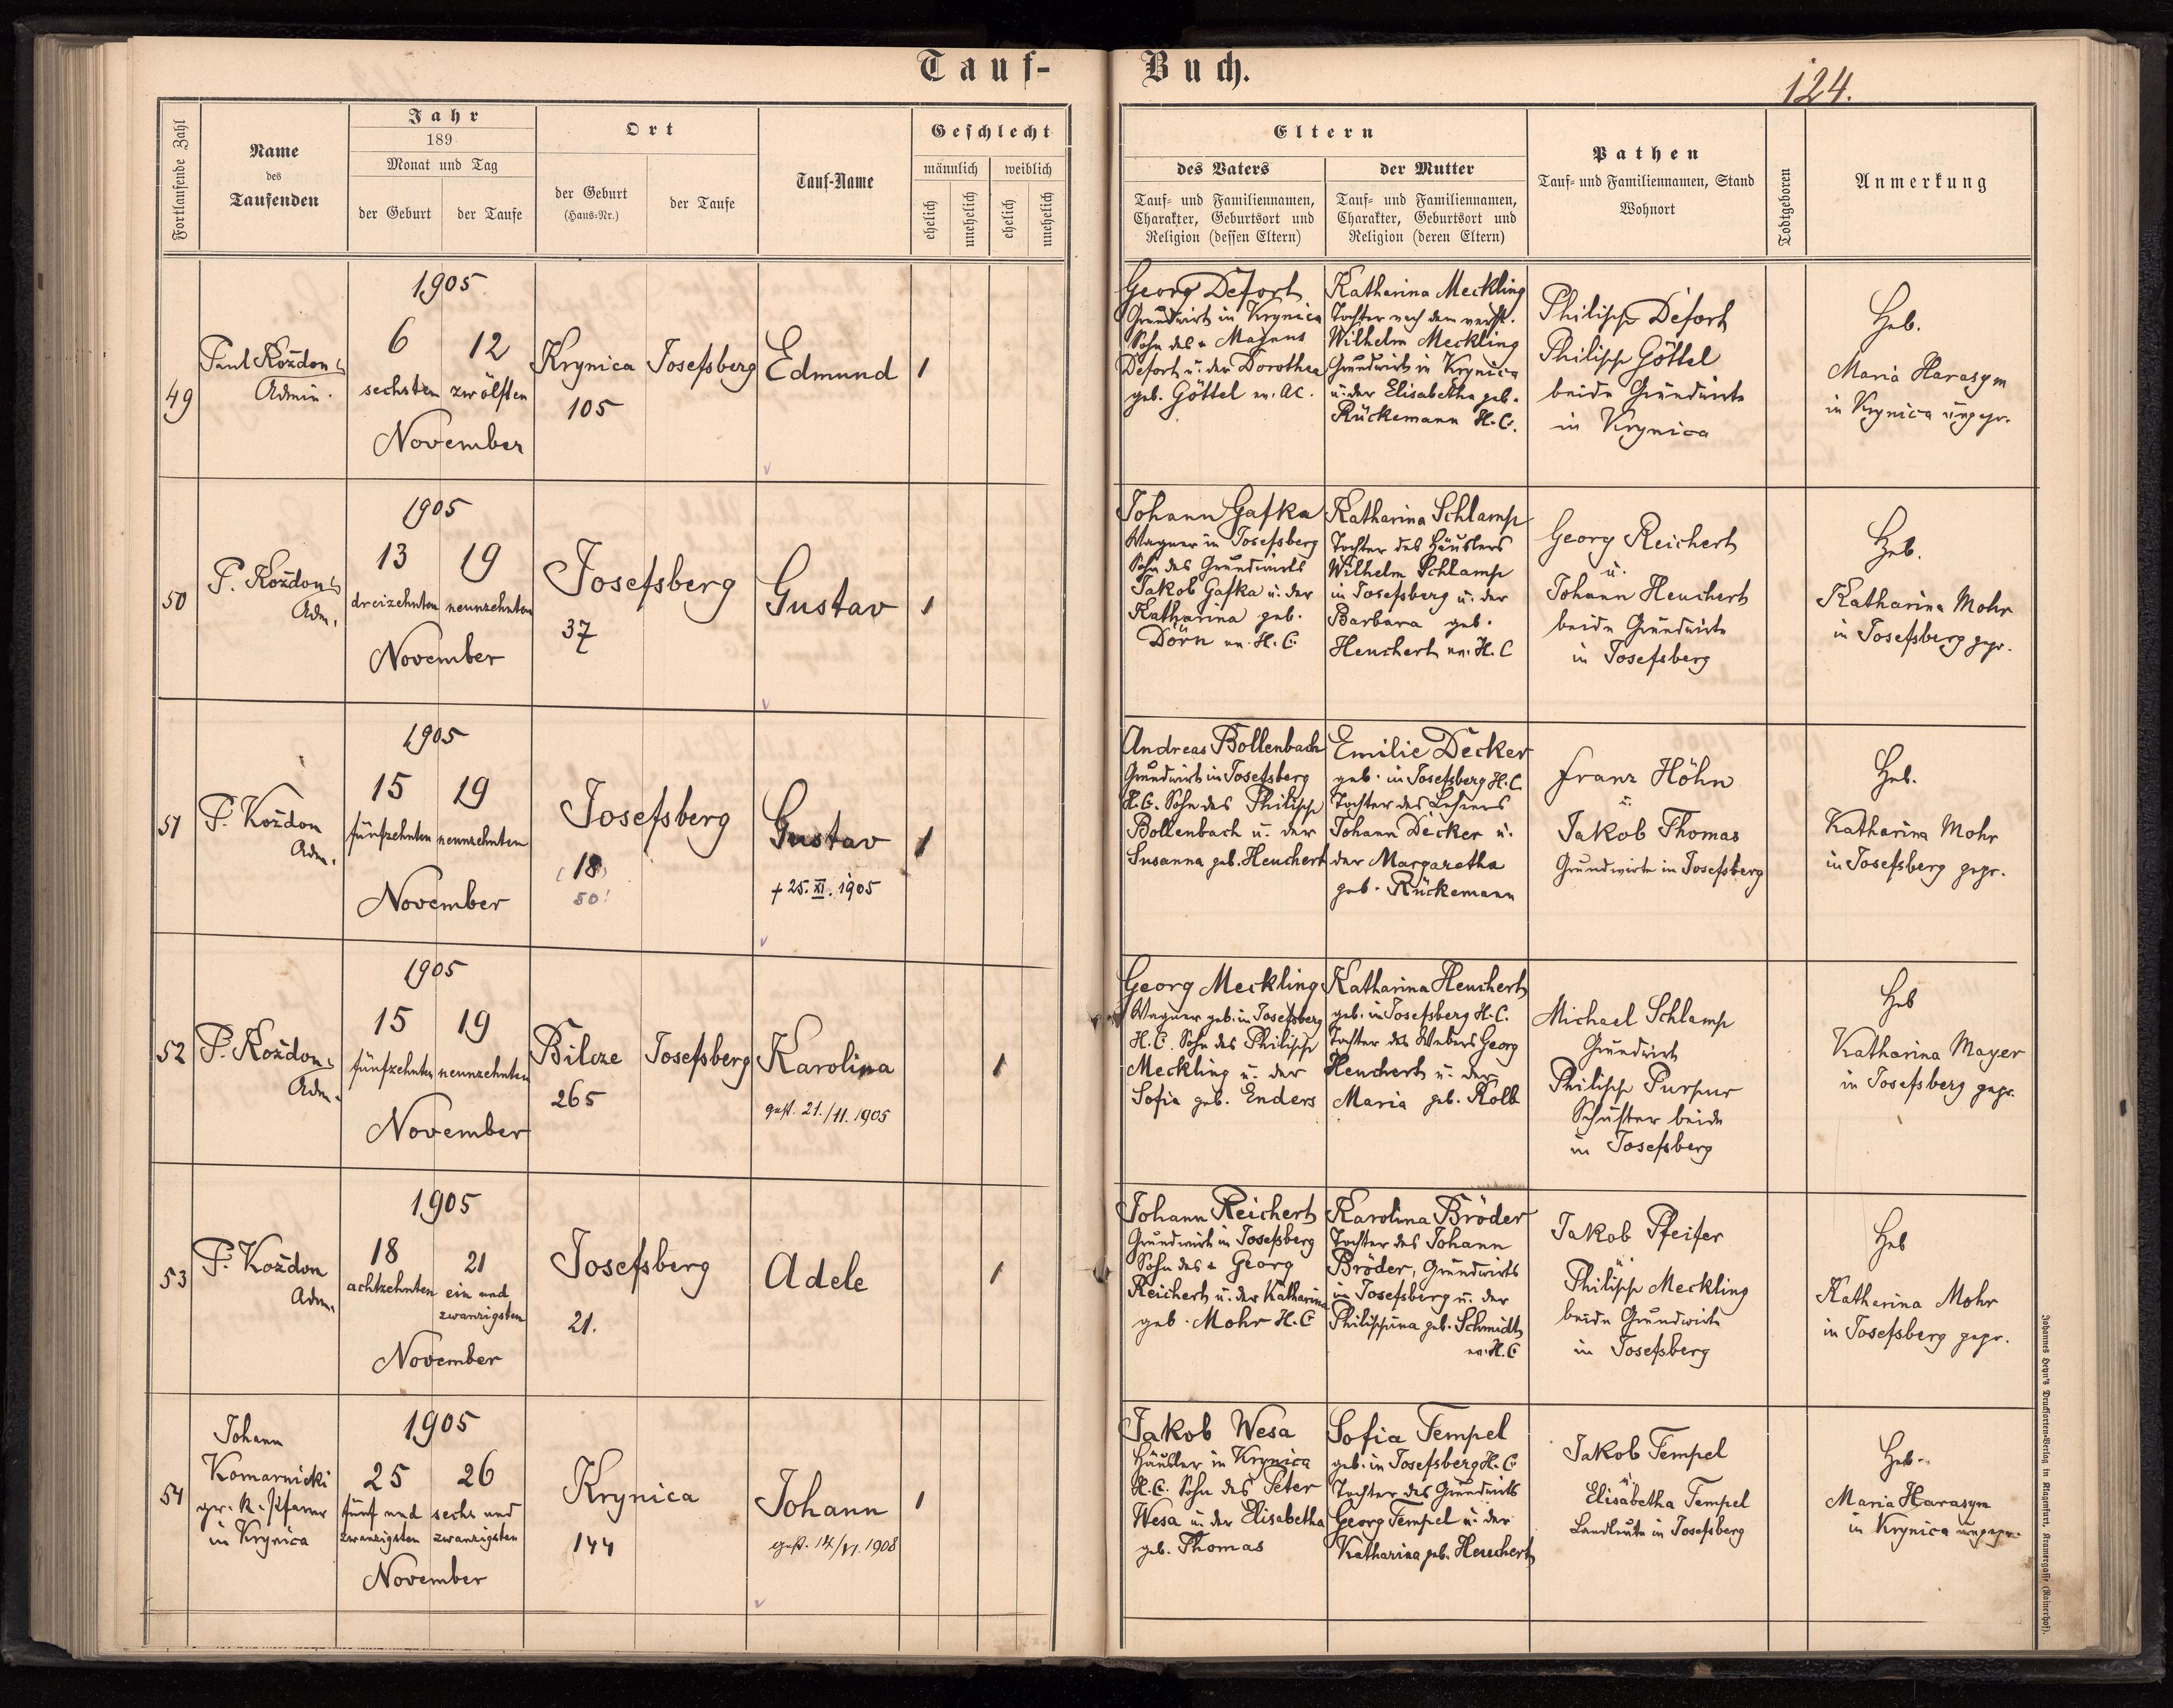 Tauf-
Buch.
124.
Fortlaufende Zahl
Name
des
Taufenden
Jahr
189
Monat und Tag
der Geburt
der Taufe
Ort
der Geburt
(Haus-Nr.)
der Taufe
Tauf-Name
Geschlecht
männlich
weiblich
ehelich
unehelich
ehelich
unehelich
Eltern
des Vaters
Tauf- und Familiennamen,
Charakter, Geburtsort und
Religion (dessen Eltern)
der Mutter
Tauf- und Familiennamen,
Charakter, Geburtsort und
Religion (deren Eltern)
Pathen
Tauf- und Familiennamen, Stand
Wohnort
Todtgeboren
Anmerkung
49
Paul Koždon
Admin.
1905
6 12
sechsten zwölften
November
Krynica
105
Josefsberg
Edmund
1
Georg Defort
Grundwirt in Krynica
Sohn des + Magnus
Defort u. der Dorothea
geb. Göttel ev. AC.
Katharina Meckling
Tochter nach dem verst.
Wilhelm Meckling
Grundwirt in Krynica
u. der Elisabetha geb.
Rückemann H.C.
Philipp Defort
Philipp Göttel
beide Grundwirte
in Krynica
Heb.
Maria Harasym
in Krynica ungepr.
50
P. Koždon
Adm.
1905
13 19
dreizehnten neunzehnten
November
Josefsberg
37
Gustav
1
Johann Gafka
Wagner in Josefsberg
Sohn des Grundwirts
Jakob Gafka u. der
Katharina geb.
Dörn ev. H.C.
Katharina Schlamp
Tochter des Häuslers
Wilhelm Schlamp
in Josefsberg u. der
Barbara geb.
Heuchert ev. H.C
Georg Reichert
u.
Johann Heuchert
beide Grundwirte
in Josefsberg
Heb.
Katharina Mohr
in Josefsberg gepr.
51
P. Koždon
Adm.
1905
15 19
fünfzehnten neunzehnten
November
Josefsberg
(18)
50!
Gustav
+ 25. XI. 1905
1
Andreas Bollenbach
Grundwirt in Josefsberg
H.C. Sohn des Philipp
Bollenbach u. der
Susanna geb. Heuchert
Emilie Decker
geb. in Josefsberg H.C.
Tochter des Lehrers
Johann Decker u.
der Margaretha
geb. Rückemann
Franz Höhn
u.
Jakob Thomas
Grundwirte in Josefsberg
Heb.
Katharina Mohr
in Josefsberg gepr.
52
P. Koždon
Adm.
1905
15 19
fünfzehnten neunzehnten
November
Bilcze
265
Josefsberg
Karolina
gest. 21./11. 1905
1
Georg Meckling
Wagner geb. in Josefsberg
H.C. Sohn des Philipp
Meckling u. der
Sofia geb. Enders
Katharina Heuchert
geb. in Josefsberg H.C.
Tochter des Webers Georg
Heuchert u. der
Maria geb. Kolb
Michael Schlamp
Grundwirt
Philipp Purpur
Schuster beide
in Josefsberg
Heb
Katharina Mayer
in Josefsberg gepr.
53
P. Koždon
Adm.
1905
18 21
achtzehnten ein und
zwanzigsten
November
Josefsberg
21.
Adele
1
Johann Reichert
Grundwirt in Josefsberg
Sohn des + Georg
Reichert u. der Katharina
geb. Mohr H.C
Karolina Bröder
Tochter des Johann
Bröder, Grundwirts
in Josefsberg u. der
Philippina geb. Schmidt
ev. H.C
Jakob Pfeifer
u.
Philipp Meckling
beide Grundwirte
in Josefsberg
Heb
Katharina Mohr
in Josefsberg gepr.
54
Johann
Komarnicki
gr. k. Pfarrer
in Krynica
1905
25 26
fünf und sechs und
zwanzigsten zwanzigsten
November
Krynica
144
Johann
gest. 14/VI. 1908
1
Jakob Wesa
Häusler in Krynica
H.C. Sohn des Peter
Wesa u. der Elisabetha
geb. Thomas
Sofia Tempel
geb. in Josefsberg H.C.
Tochter des Grundwirts
Georg Tempel u. der
Katharina geb. Heuchert
Jakob Tempel
u.
Elisabetha Tempel
Landleute in Josefsberg
Heb.
Maria Harasym
in Krynica ungepr.
Johannes Heyn's Drucksorten-Verlag in Klagenfurt, Kramergasse (Rainerhof).